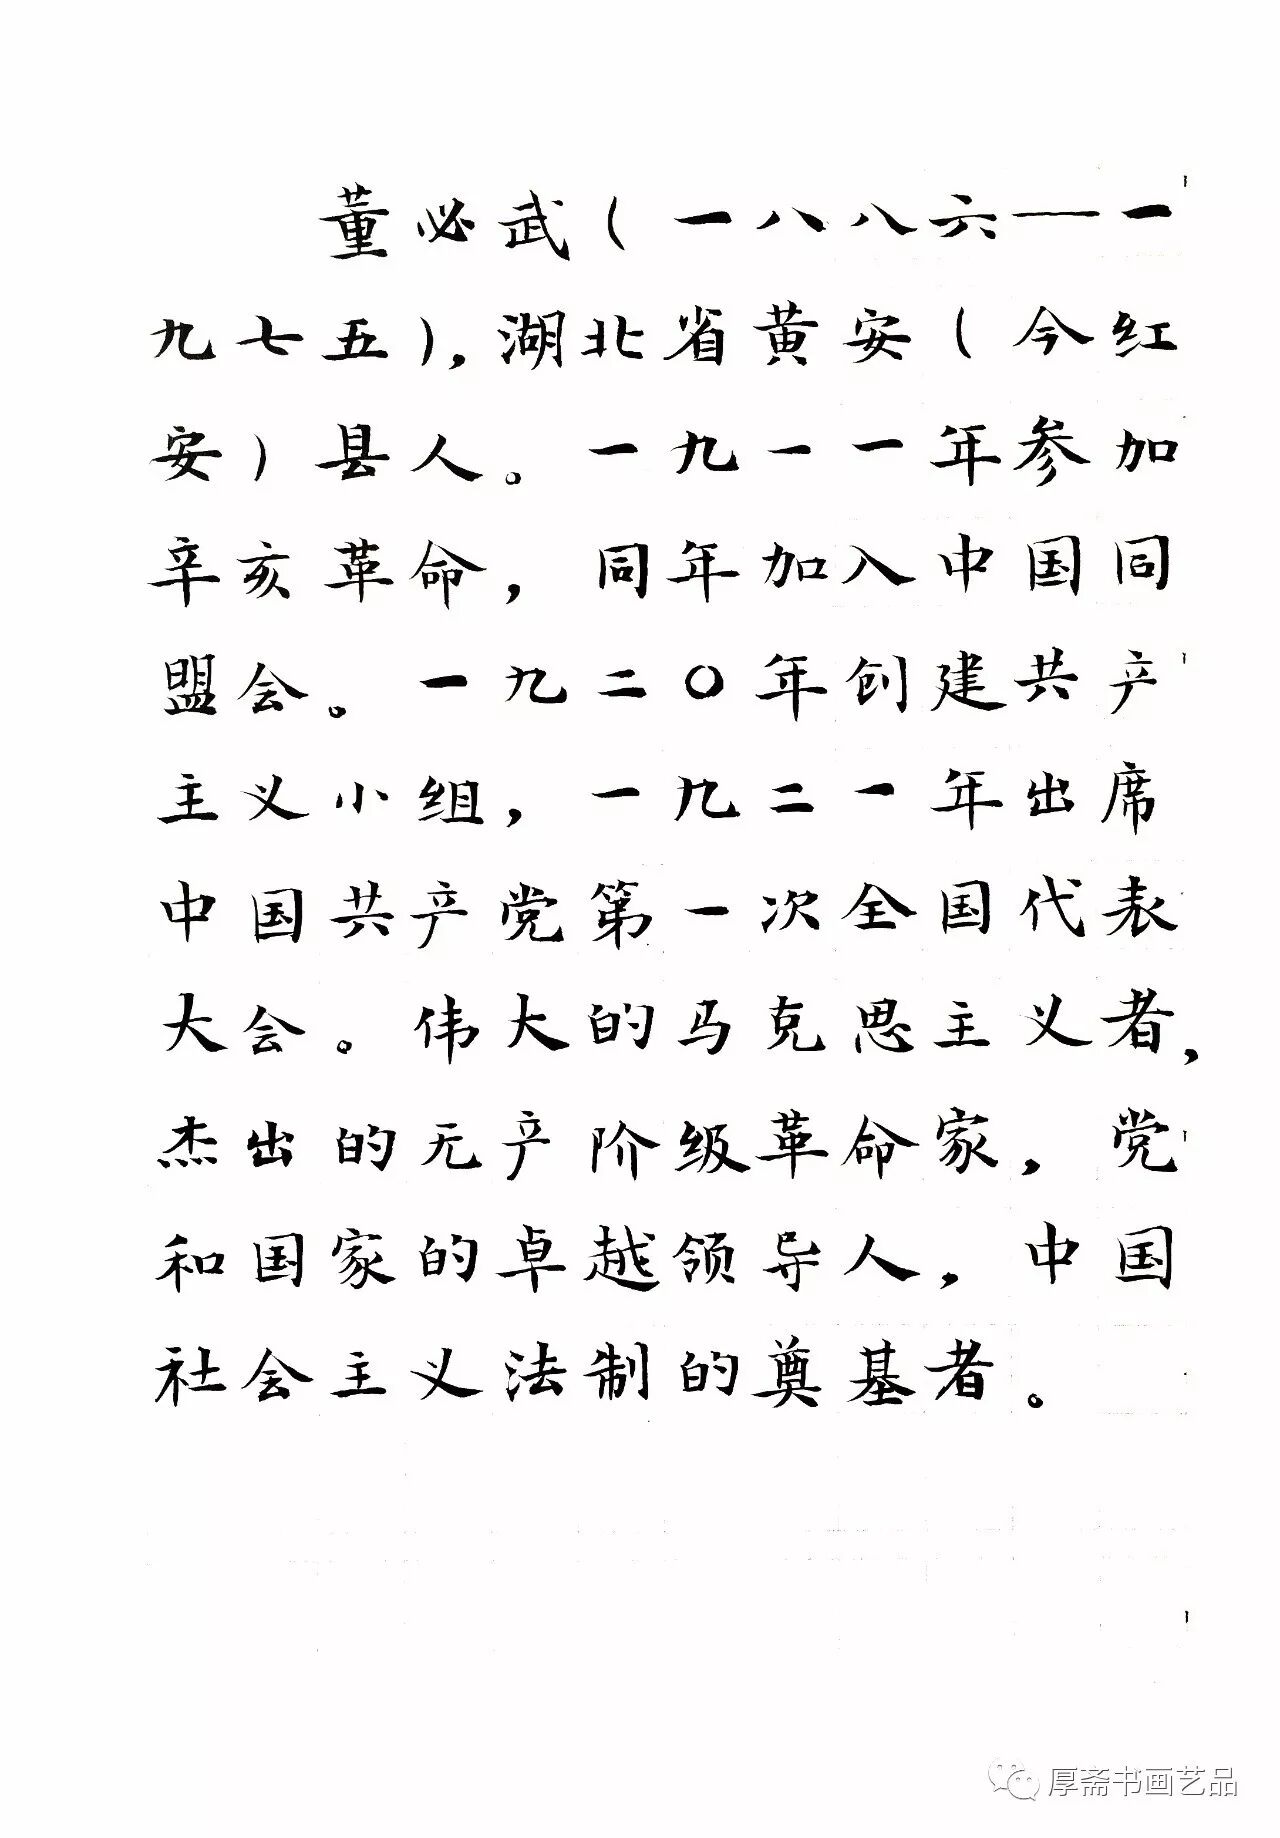 董必武（一八八六——一
九七五），湖北省黄安（今红
安）县人。一九一一年参加
辛亥革命，同年加入中国同
盟会。一九二〇年创建共产
主义小组，一九二一年出席
中国共产党第一次全国代表
大会。伟大的马克思主义者，
杰出的无产阶级革命家，党
和国家的卓越领导人，中国
社会主义法制的奠基者。
厚斋书画艺品